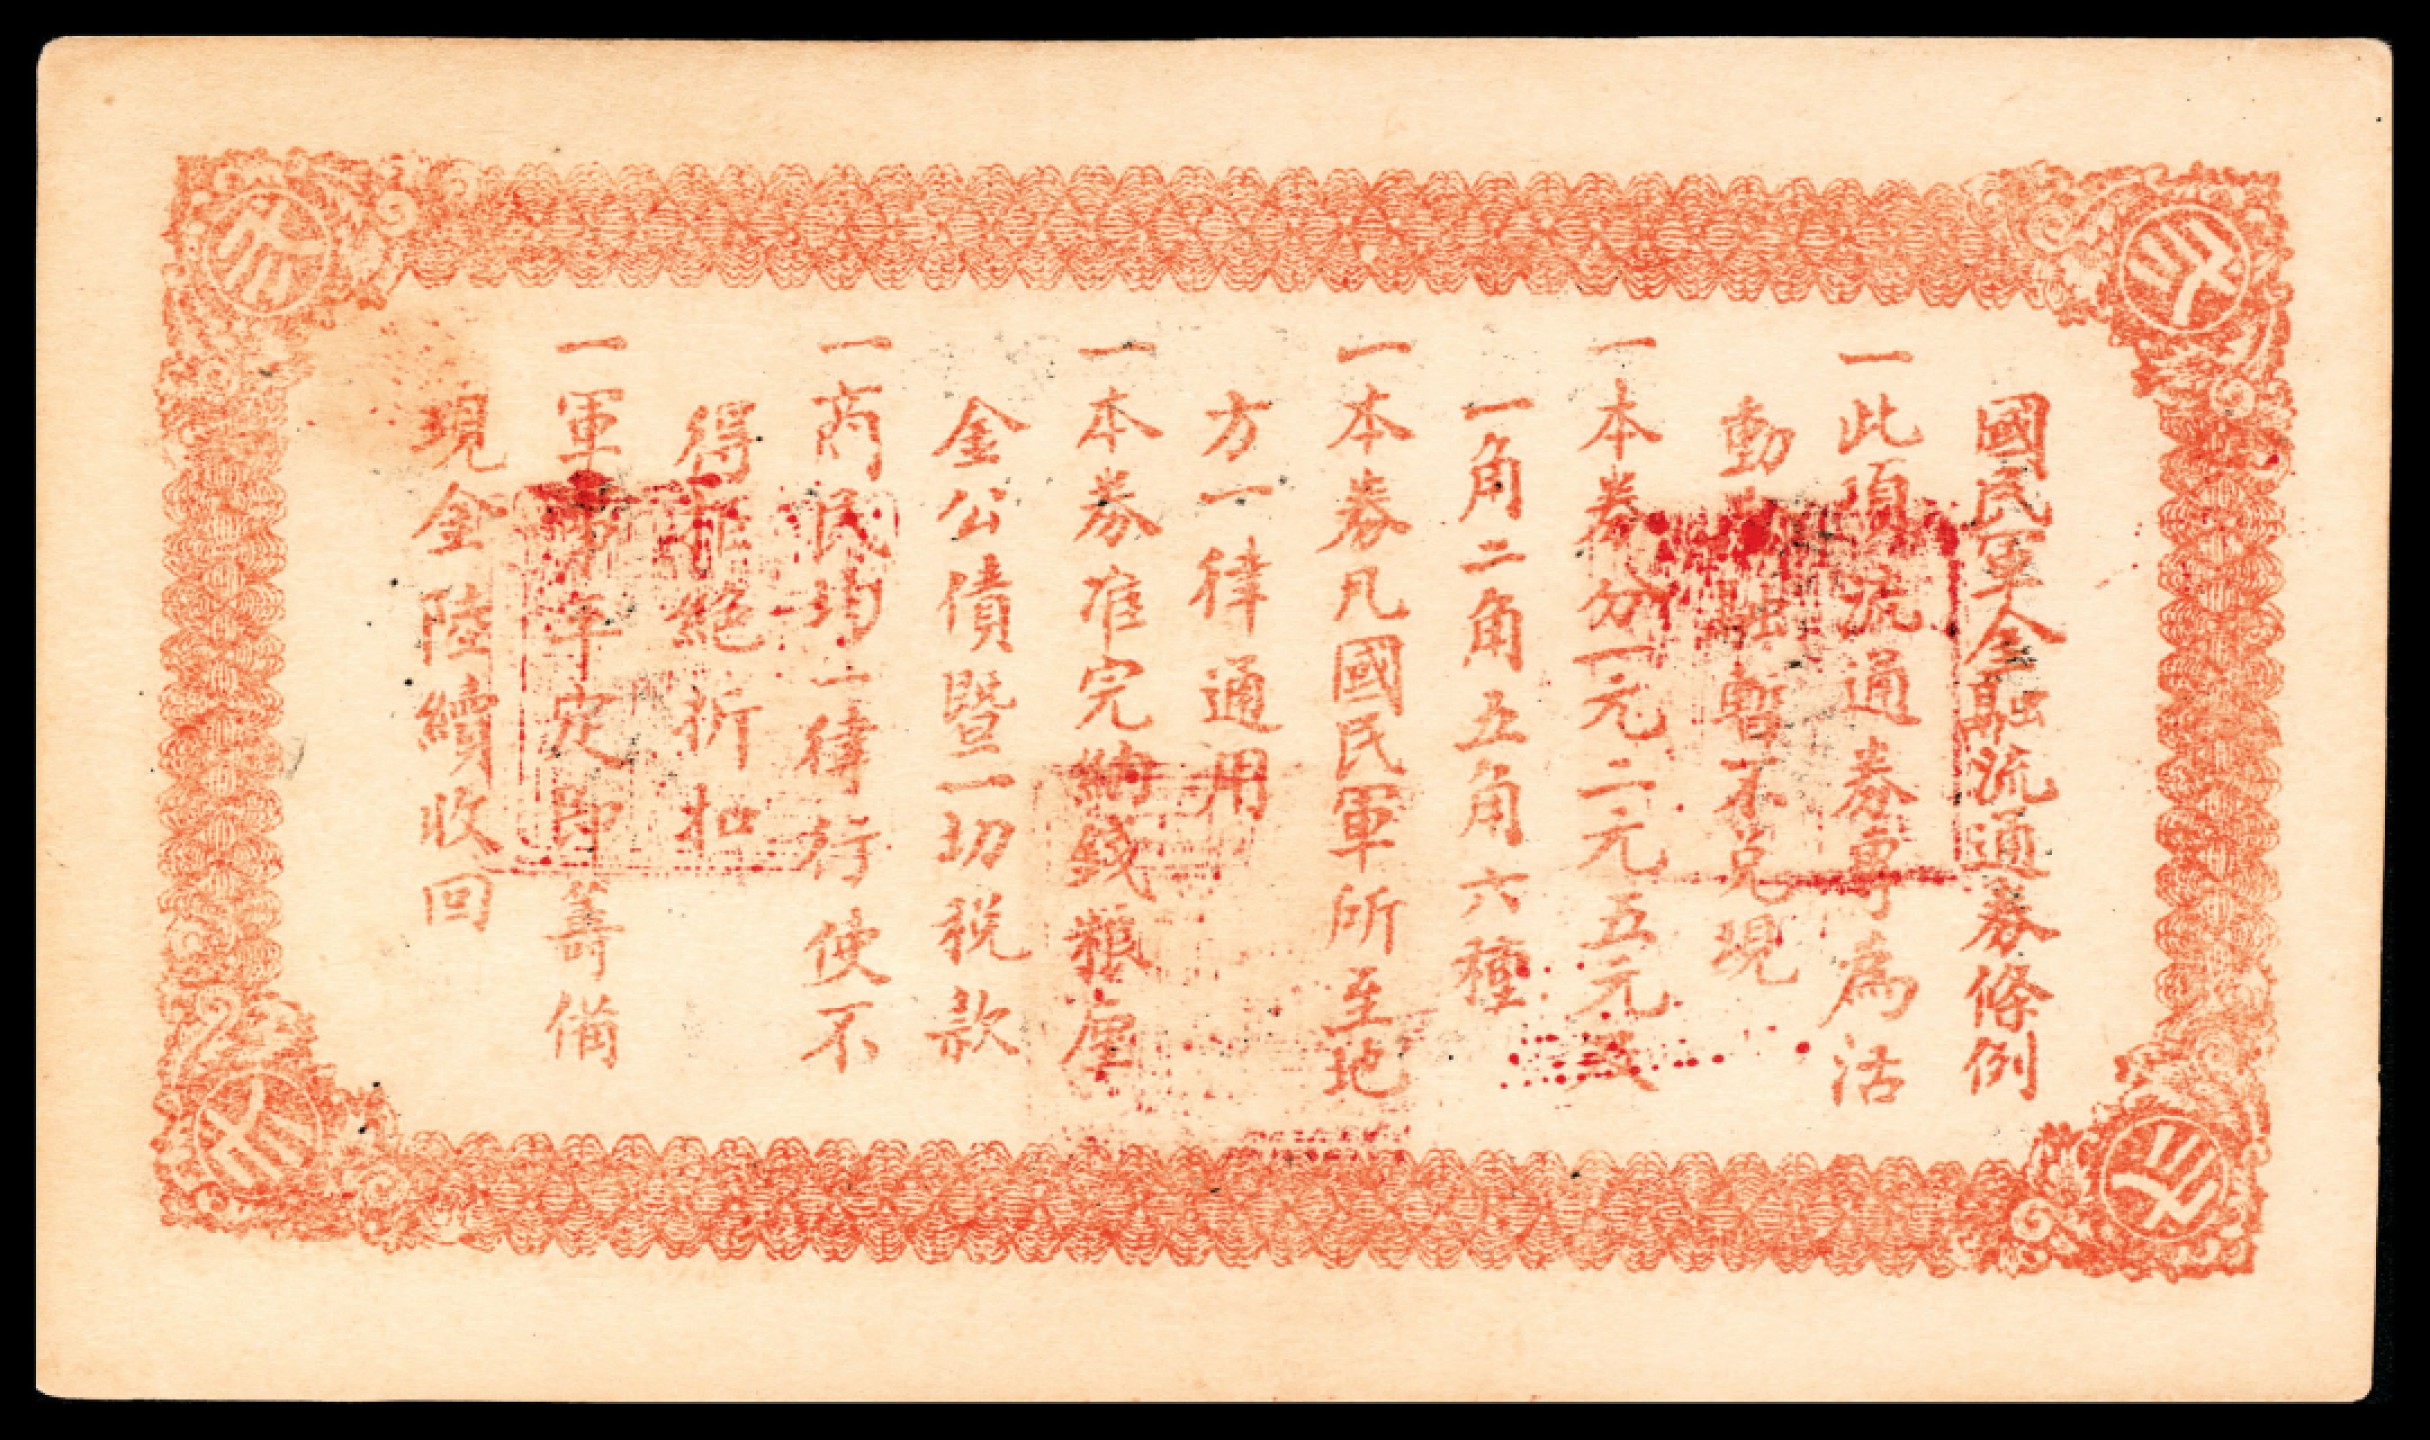 國民軍金融流通券條例
一此項流通券專為活
動金融暫不兌現
一本券分一元二元五元及
一角二角五角六種
一本券凡國民軍所至地
方一律通用
一本券准完納錢粮厘
金公債暨一切税款
一商民均一律行使不
得拒絕折扣
一軍事平定即籌備
現金陸續收回